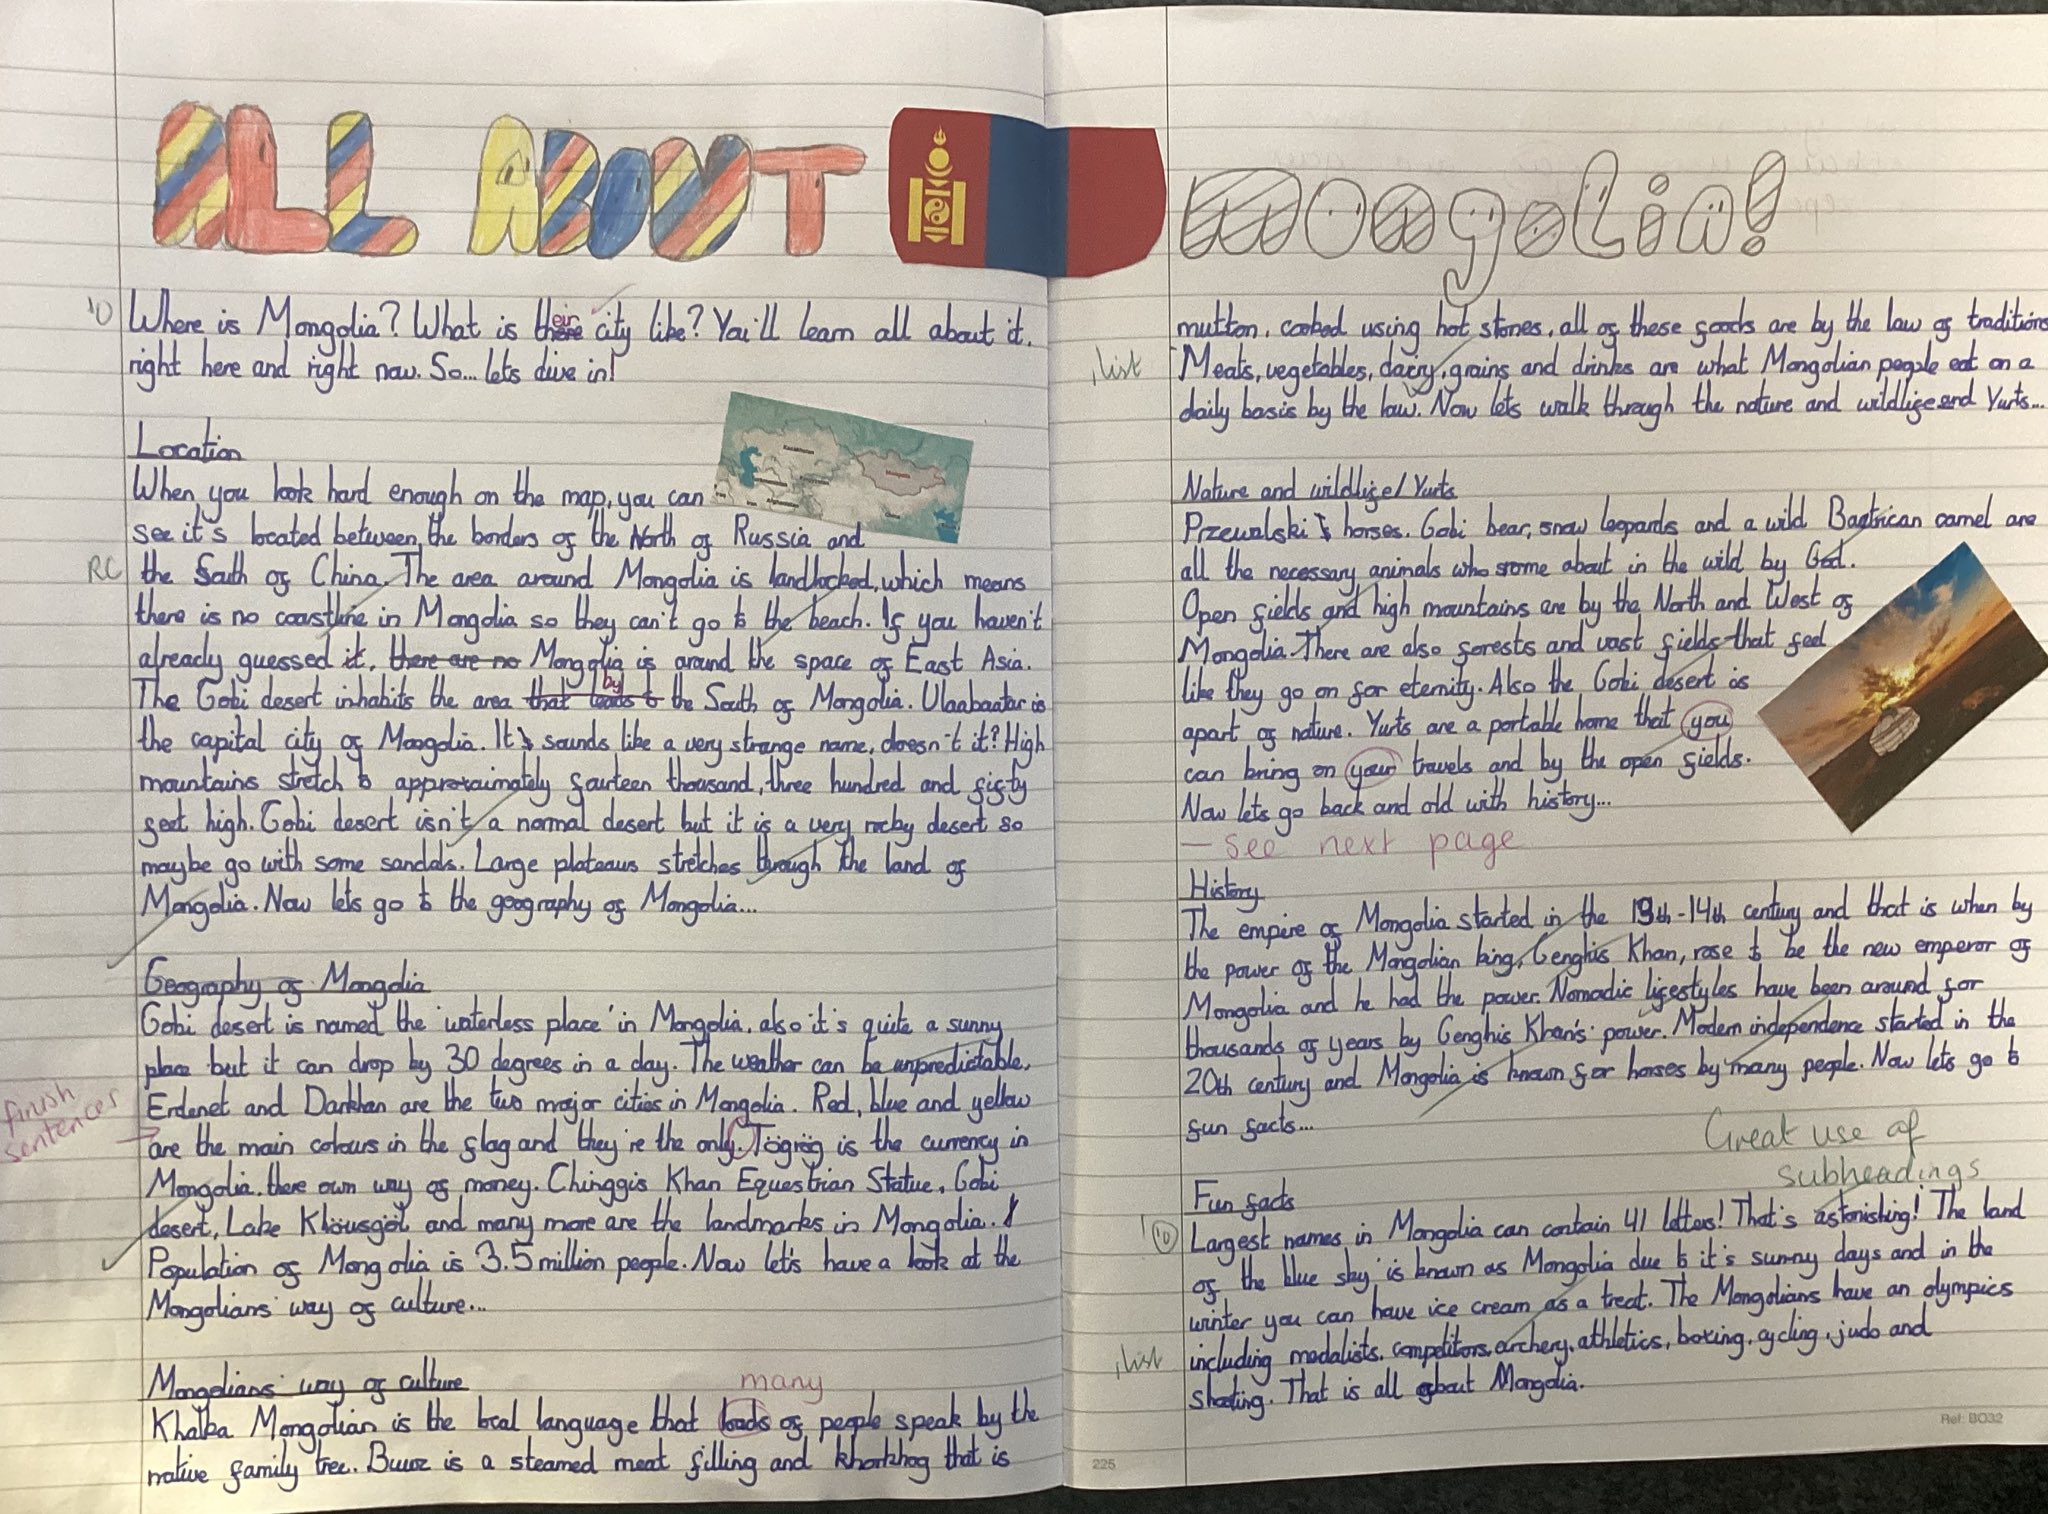 ALL ABOUT Mongolia!
'O
Where is Mongolia? What is their city like? You'll learn all about it.
right here and right now. So... lets dive in!
Location
When you look hard enough on the map, you can
see it's located between the borders of the North of Russia and
RC
the South of China. The area around Mongolia is landlocked, which means
there is no coastline in Mongolia so they can't go to the beach. If you haven't
already guessed it, there are no Mongolia is around the space of East Asia.
by
The Gobi desert inhabits the area that leads to the South of Mongolia. Ulaabaatar is
the capital city of Mongolia. It sounds like a very strange name, doesn't it? High
mountains stretch to approximately fourteen thousand, three hundred and fifty
feet high. Gobi desert isn't a normal desert but it is a very rocky desert so
maybe go with some sandals. Large plateaus stretches through the land of
Mongolia. Now lets go to the geography of Mongolia...
Geography of Mongolia
Gobi desert is named the 'waterless place' in Mongolia, also it's quite a sunny
place but it can drop by 30 degrees in a day. The weather can be unpredictable.
finish
sentences
Erdenet and Darkhan are the two major cities in Mongolia. Red, blue and yellow
are the main colours in the flag and they're the only. Tögrög is the currency in
Mongolia, there own way of money. Chinggis Khan Equestrian Statue, Gobi
desert, Lake Khöusgöl and many more are the landmarks in Mongolia.
Population of Mongolia is 3.5 million people. Now let's have a look at the
Mongolians' way of culture...
Mongolians' way of culture
many
Khalka Mongolian is the local language that loads of people speak by the
native family tree. Buuz is a steamed meat filling and khorkhog that is
mutton, cooked using hot stones, all of these foods are by the law of traditions
, list
Meats, vegetables, dairy, grains and drinks are what Mongolian people eat on a
daily basis by the law. Now lets walk through the nature and wildlife and Yurts...
Nature and wildlife/Yurts
Przewalski's horses. Gobi bear, snow leopards and a wild Bactrican camel are
all the necessary animals who rome about in the wild by God.
Open fields and high mountains are by the North and West of
Mongolia. There are also forests and vast fields that feel
like they go on for eternity. Also the Gobi desert is
apart of nature. Yurts are a portable home that you
can bring on your travels and by the open fields.
Now lets go back and old with history...
— see next page
History
The empire of Mongolia started in the 13th-14th century and that is when by
the power of the Mongolian king, Genghis Khan, rose to be the new emperor of
Mongolia and he had the power. Nomadic lifestyles have been around for
thousands of years by Genghis Khan's power. Modern independence started in the
20th century and Mongolia is known for horses by many people. Now lets go to
fun facts...
Great use of
subheadings
Fun facts
'O
Largest names in Mongolia can contain 41 letters! That's astonishing! The land
of the blue sky' is known as Mongolia due to it's sunny days and in the
winter you can have ice cream as a treat. The Mongolians have an olympics
, list
including medalists, competitors, archery, athletics, boxing, cycling, judo and
shooting. That is all about Mongolia.
Ref: BO32
225